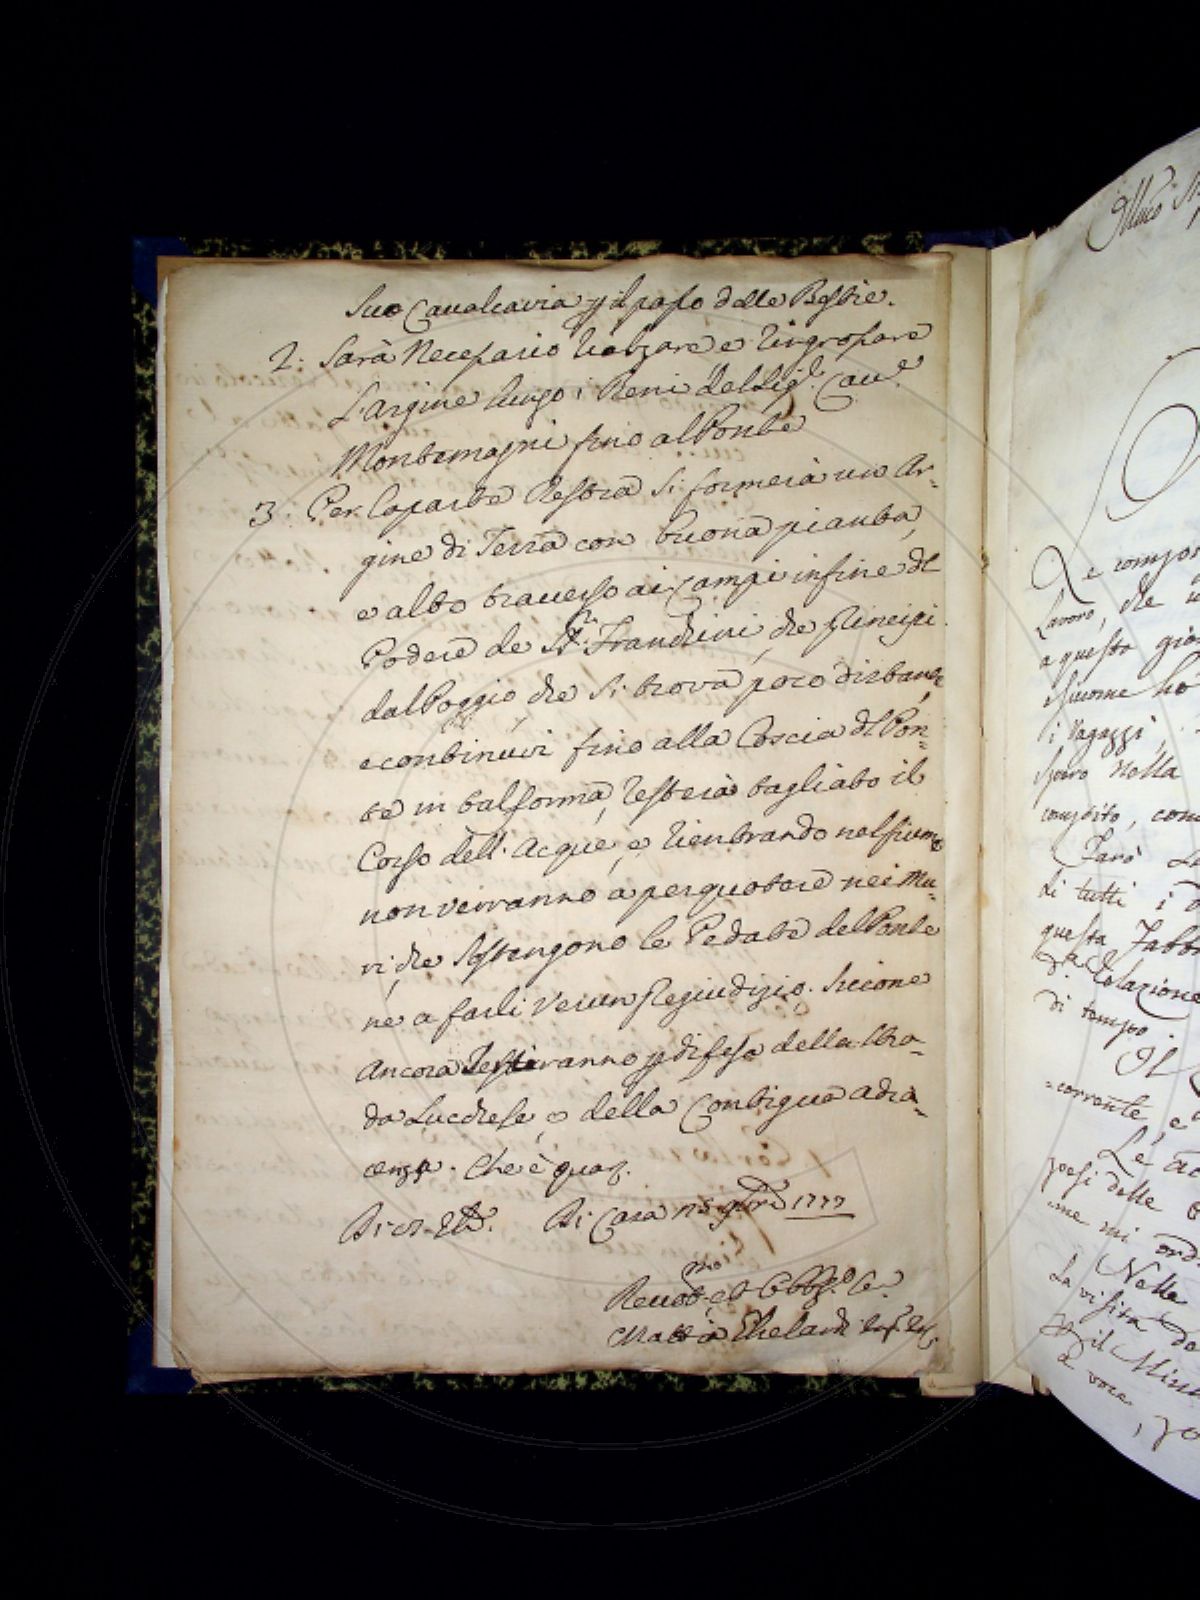 Suo Cavalcavia p il passo delle Bestie.
2. Sarà Necessario rialzare e ringrossare
L'Argine lungo i Beni del Sig.r Cav.e
Montemagni fino al Ponte
3. Per la parte destra si formerà un Ar-
gine di Terra con buona pianta,
e alto traverso ai Campi in fine del
Podere de SS.ri Franchini, che Principi
dal Poggio che si trova poco distante,
e continuvi fino alla Coscia del Pon-
te in tal forma, resterà tagliato il
Corso dell'Acque, e rientrando nel fiume
non verranno a perquotere nei Mu-
ri, che sostengono le Pedate del Ponte
ne a farli verun Pregiudizio. Siccome
Ancora Resteranno p difesa della Stra-
da Lucchese, e della Contigua adia-
cenza. Che è quaz.
Di Casa n5 1777
Mattia
Le compon
Lavoro, che
a questo gio
siccome ho
li Ragazzi,
Spero nella
compito, com
Farò
di tutti i
questa Fabb
Relazione
di tempo.
Il
corrente, e
Le
pesi delle
me mi ord
Nelle
La visita
p il Minis
a voce,